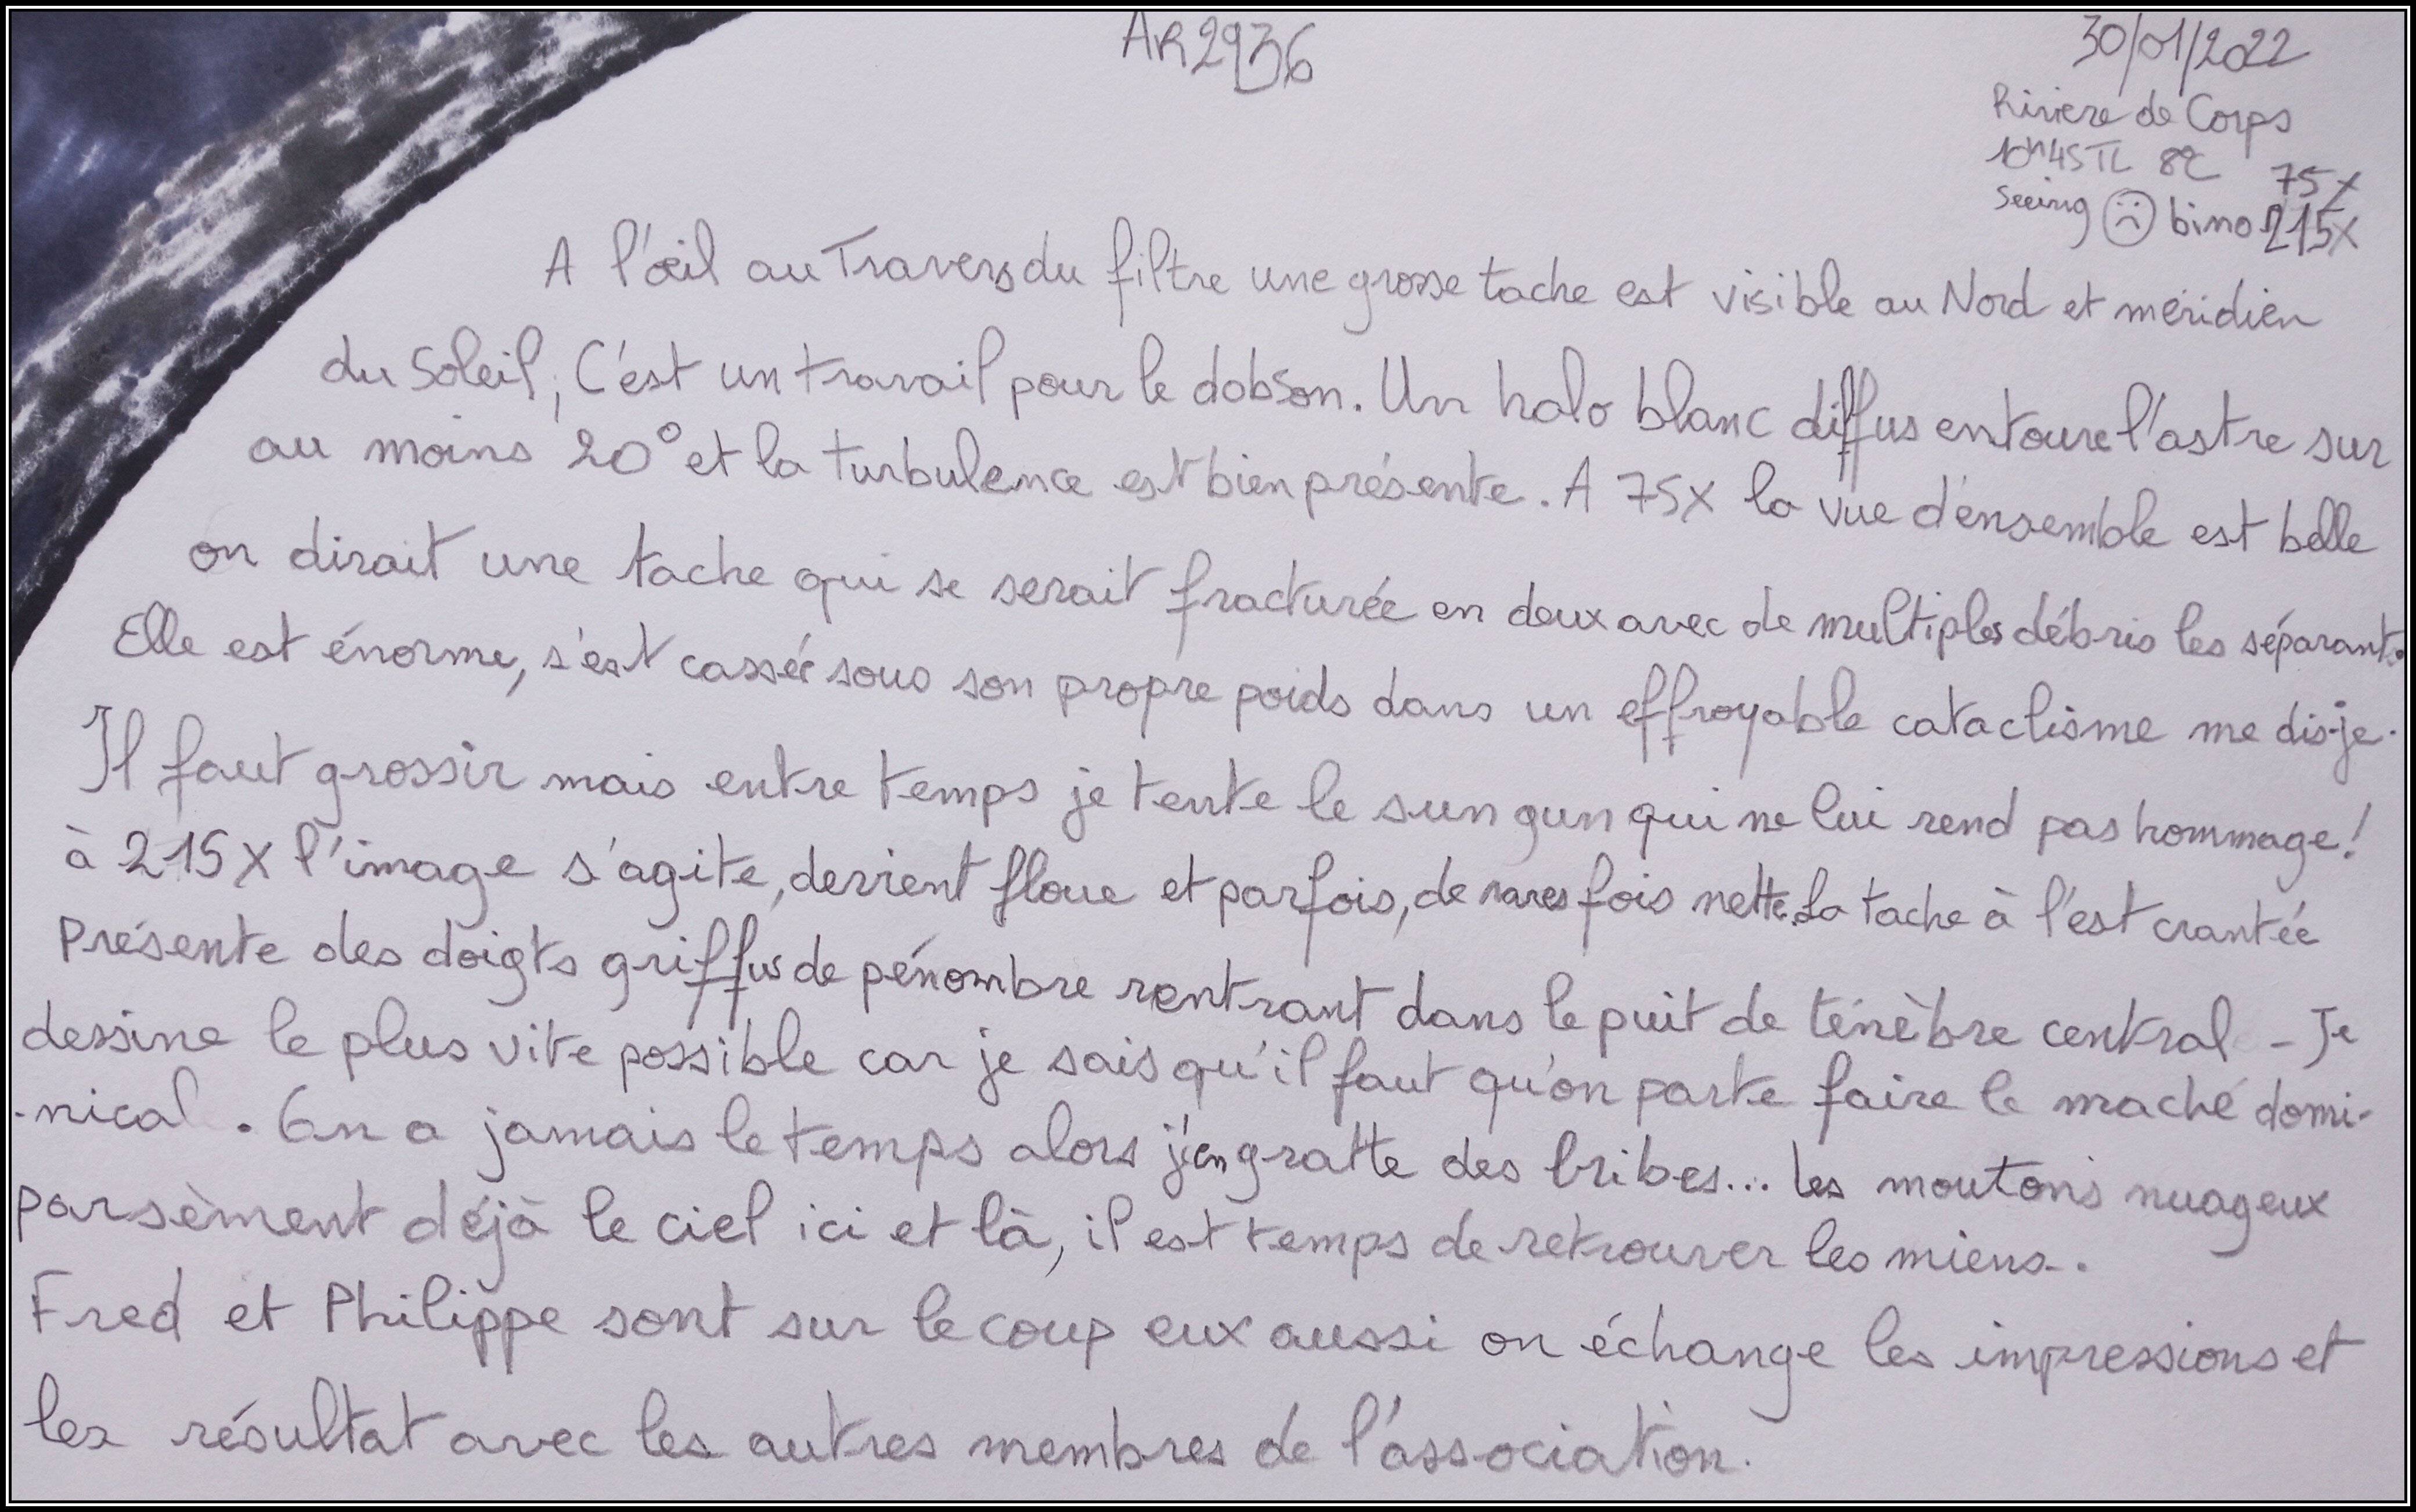 AR2936
30/01/2022
Riviere de Corps
10h45TL 8°C 75X
Seeing bino 215X
A l'œil au Travers du filtre une grosse tache est visible au Nord et méridien
du Soleil, C'est un travail pour le dobson. Un halo blanc diffus entoure l'astre sur
au moins 20° et la turbulence est bien présente. A 75X la vue d'ensemble est belle
on dirait une tache qui se serait fracturée en deux avec de multiples débris les séparant.
Elle est énorme, s'est cassée sous son propre poids dans un effroyable cataclisme me dis-je.
Il faut grossir mais entre temps je tente le sun gun qui ne lui rend pas hommage!
à 215X l'image s'agite, devient floue et parfois, de rares fois nette. La tache à l'est crantée
Présente des doigts griffus de pénombre rentrant dans le puit de ténèbre central - Je
dessine le plus vite possible car je sais qu'il faut qu'on parte faire le maché domi-
-nical. On a jamais le temps alors j'en gratte des bribes... les moutons nuageux
parsèment déjà le ciel ici et là, il est temps de retrouver les miens.
Fred et Philippe sont sur le coup eux aussi on échange les impressions et
les résultat avec les autres membres de l'association.